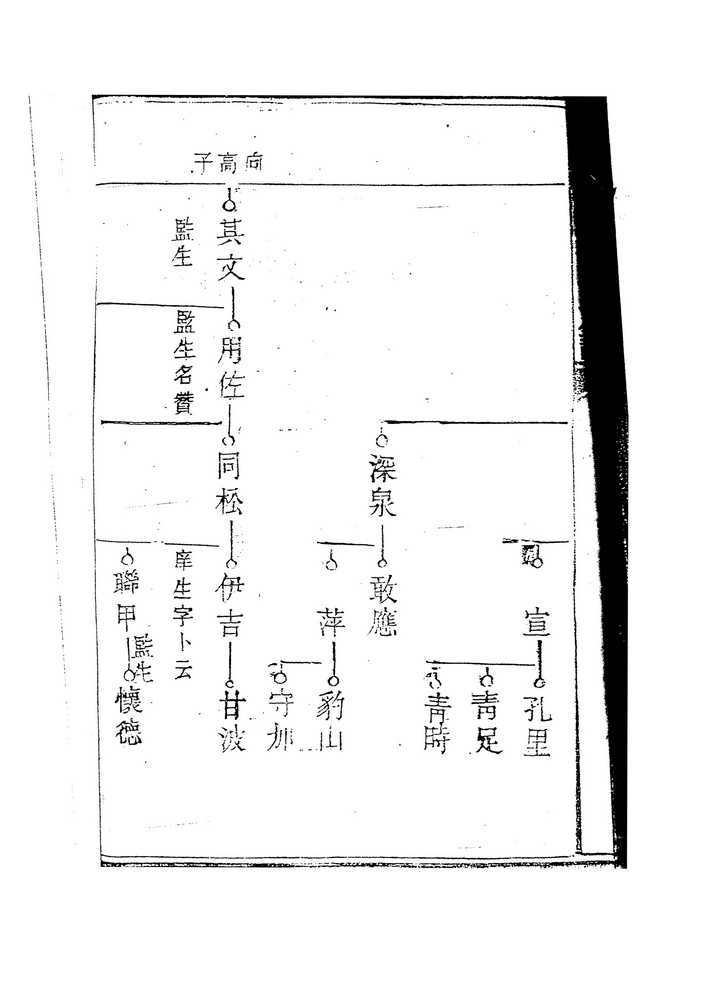 向高子
其文
監生
用佐
監生名贊
深泉
同松
宣
敢應
萍
伊吉
庠生字卜云
聯甲
監生
孔里
青足
青時
豹山
守
甘波
懷德